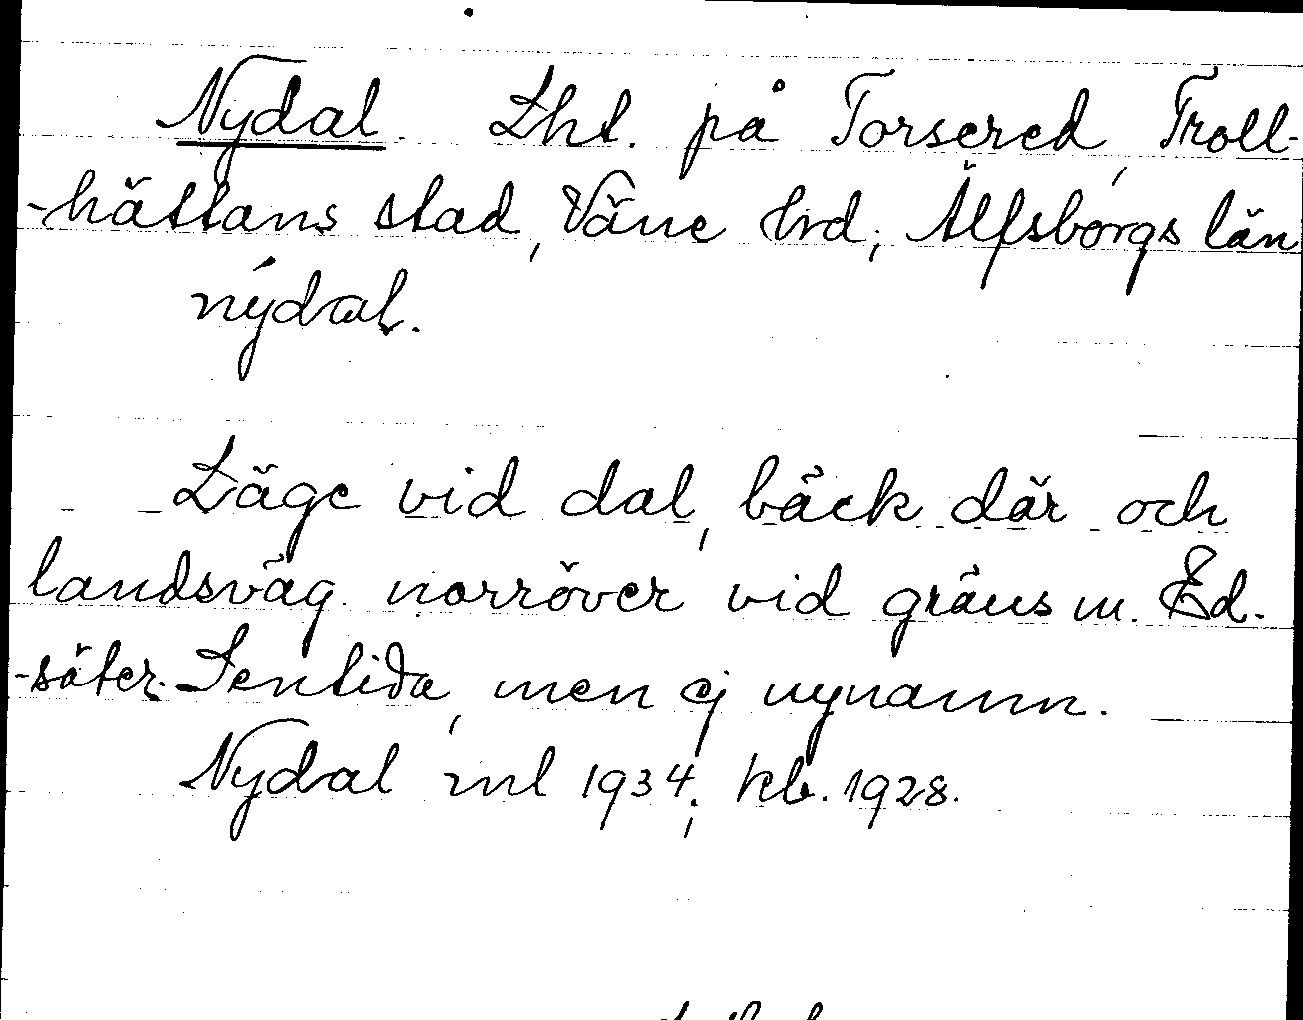 Nydal. Lht. på Torsered, Troll-
-hättans stad, Väne hrd, Älfsborgs län
nýdal.
Läge vid dal, bäck där och
landsväg norröver vid gräns m. Ed-
-säter. Sentida, men ej nynamn.
Nydal ml 1934; kb. 1928.